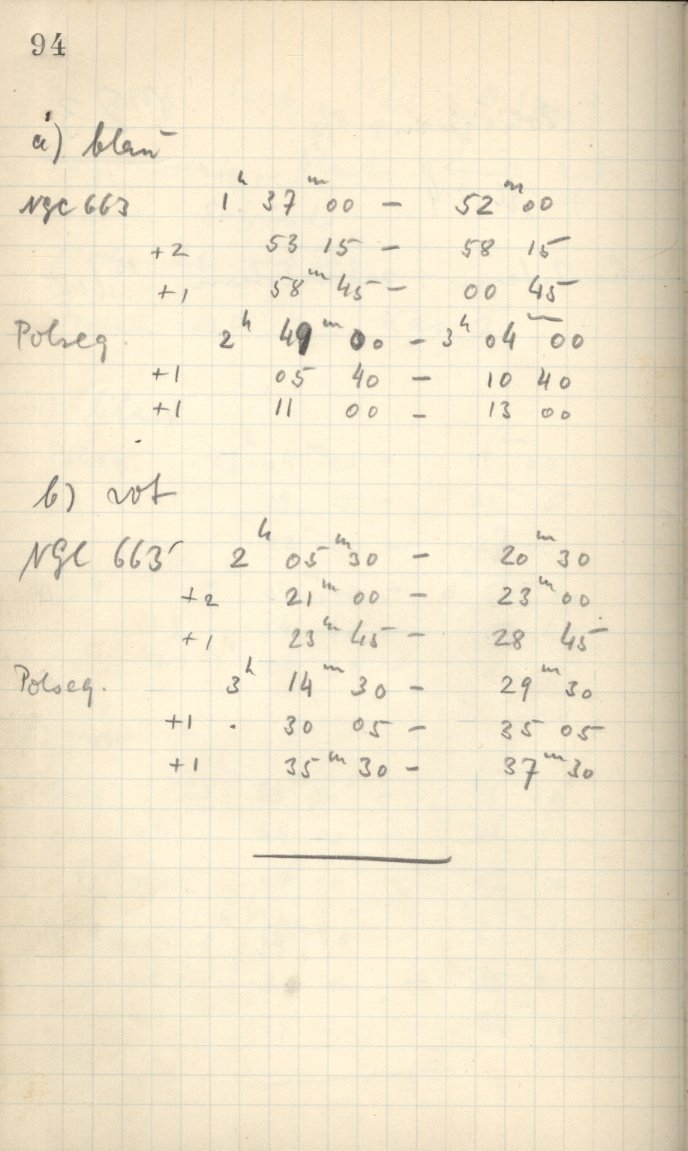 94
a) blau
NGC 663 1h 37m 00 - 52m 00
+2 53 15 - 58 15
+1 58m 45 - 00 45
Polseq. 2h 49m 00 - 3h 04m 00
+1 05 40 - 10 40
+1 11 00 - 13 00
b) rot
NGC 663 2h 05m 30 - 20m 30
+2 21m 00 - 23m 00
+1 23m 45 - 28 45
Polseq. 3h 14m 30 - 29m 30
+1 . 30 05 - 35 05
+1 35m 30 - 37m 30